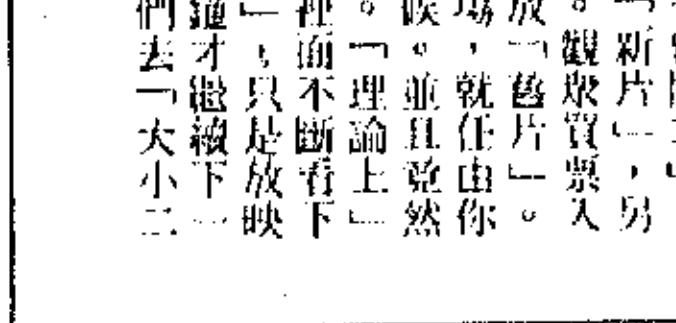 新片」，另
。觀眾買票入
放「舊片」。
場，就任由你
候。並且竟然
。「理論上」
裡面不斷看下
」，只是放映
才繼續下一
們去「大小二